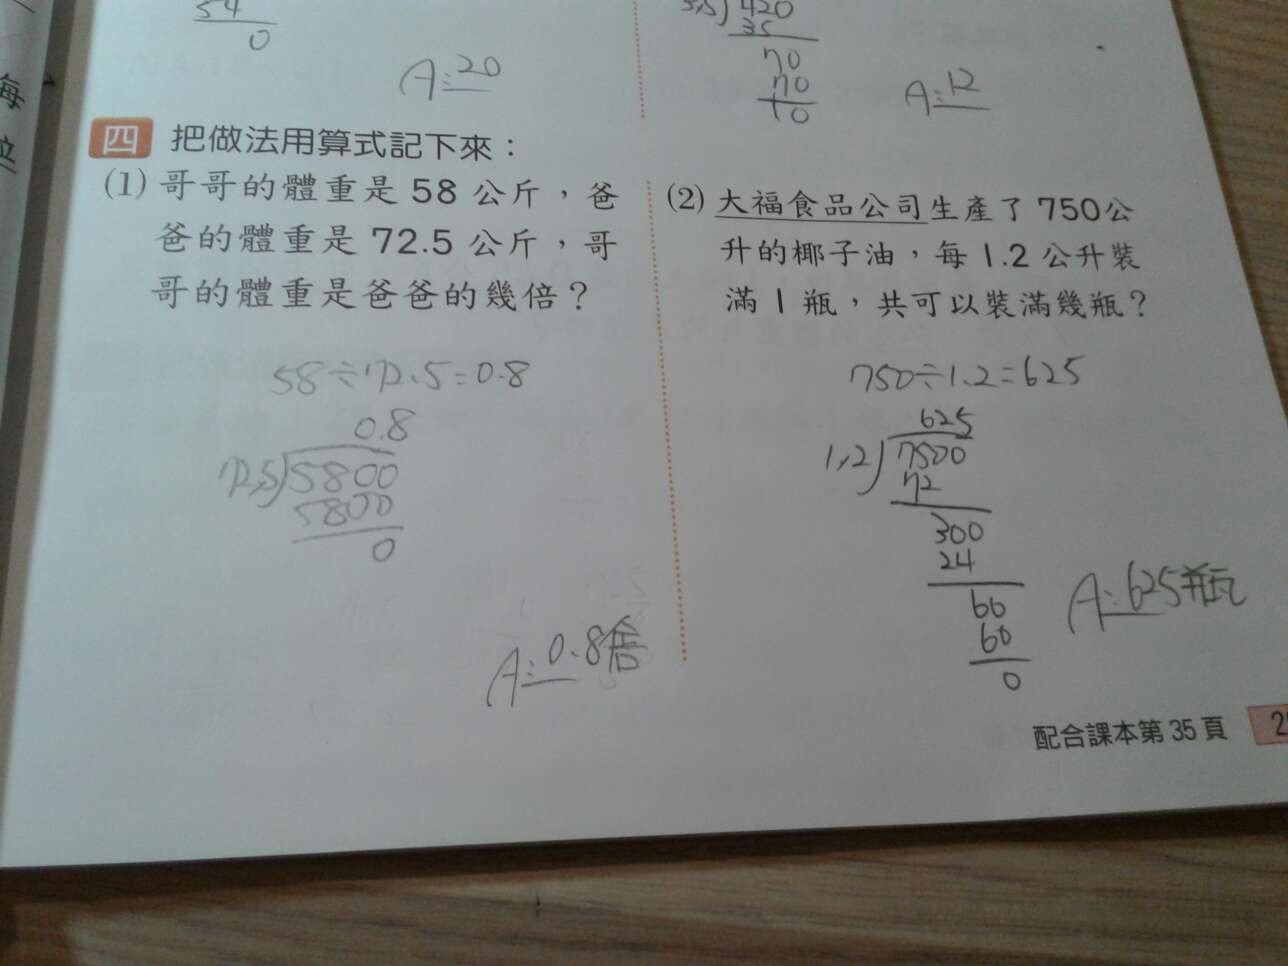 54
0
A：20
3.5 420
35
70
70
0
A：12
每
位
四 把做法用算式記下來：
(1) 哥哥的體重是 58 公斤，爸
爸的體重是 72.5 公斤，哥
哥的體重是爸爸的幾倍？
58÷72.5=0.8
0.8
72.5 5800
5800
0
A：0.8倍
(2) 大福食品公司生產了 750公
升的椰子油，每 1.2 公升裝
滿 1 瓶，共可以裝滿幾瓶？
750÷1.2=625
625
1.2 7500
72
300
24
60
60
0
A：625瓶
配合課本第 35 頁